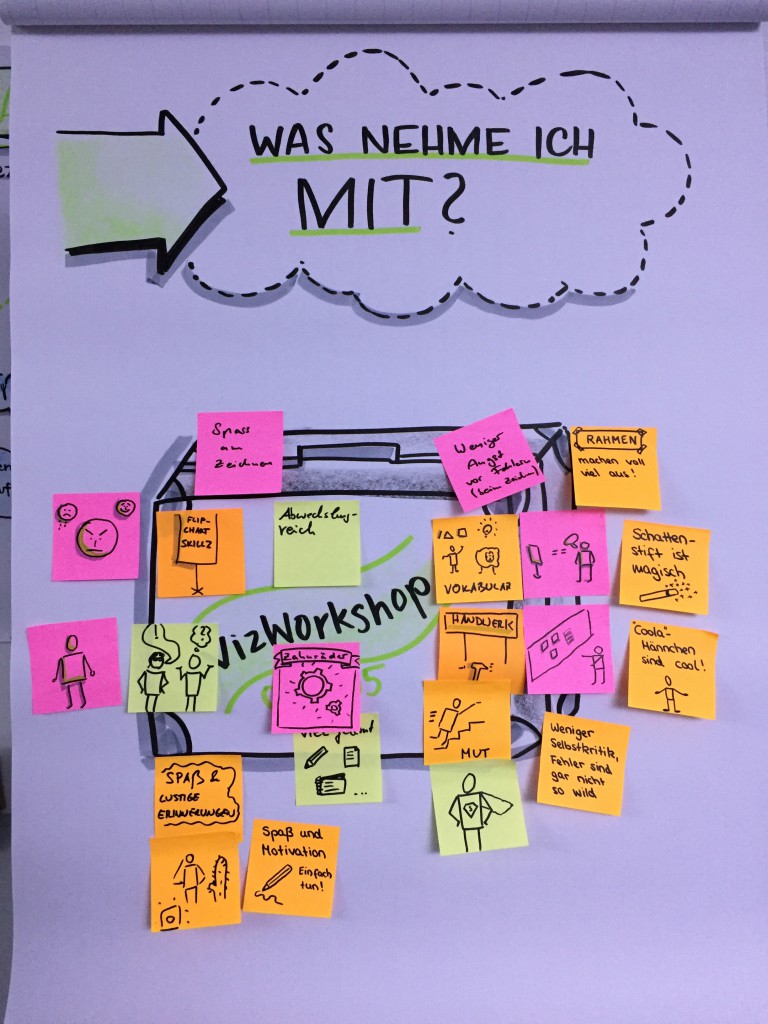 WAS NEHME ICH
MIT?
Spass
am
Zeichnen
Weniger
Angst
vor Fehlern
(beim Zeichn)
RAHMEN
machen voll
viel aus!
FLIP-
CHART
SKILLZ
Abwechslung-
reich
VOKABULAR
Schatten-
stift ist
magisch
VizWorkshop
5
HANDWERK
"Coola"-
Männchen
sind cool!
Zahnräder
MUT
Weniger
Selbstkritik,
Fehler sind
gar nicht
so wild
Viel gelernt
...
SPAß &
LUSTIGE
ERINNERUNGEN
S
Spaß und
Motivation
Einfach
tun!